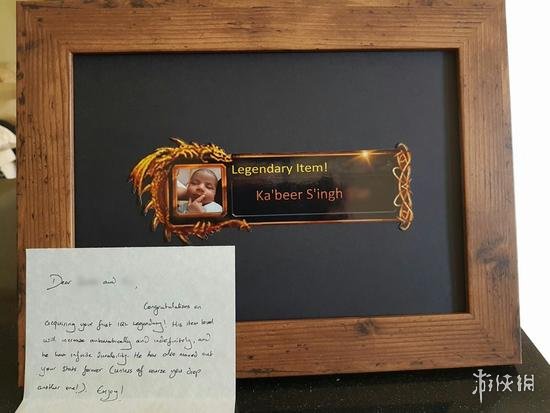 Legendary Item!
Ka'beer S'ingh
Dear and ,
Congratulations on
acquiring your first IRL Legendary! His item level
will increase automatically and indefinitely, and
he has infinite durability. He has also maxed out
your stats forever (unless of course you drop
another one!). Enjoy!
游侠网